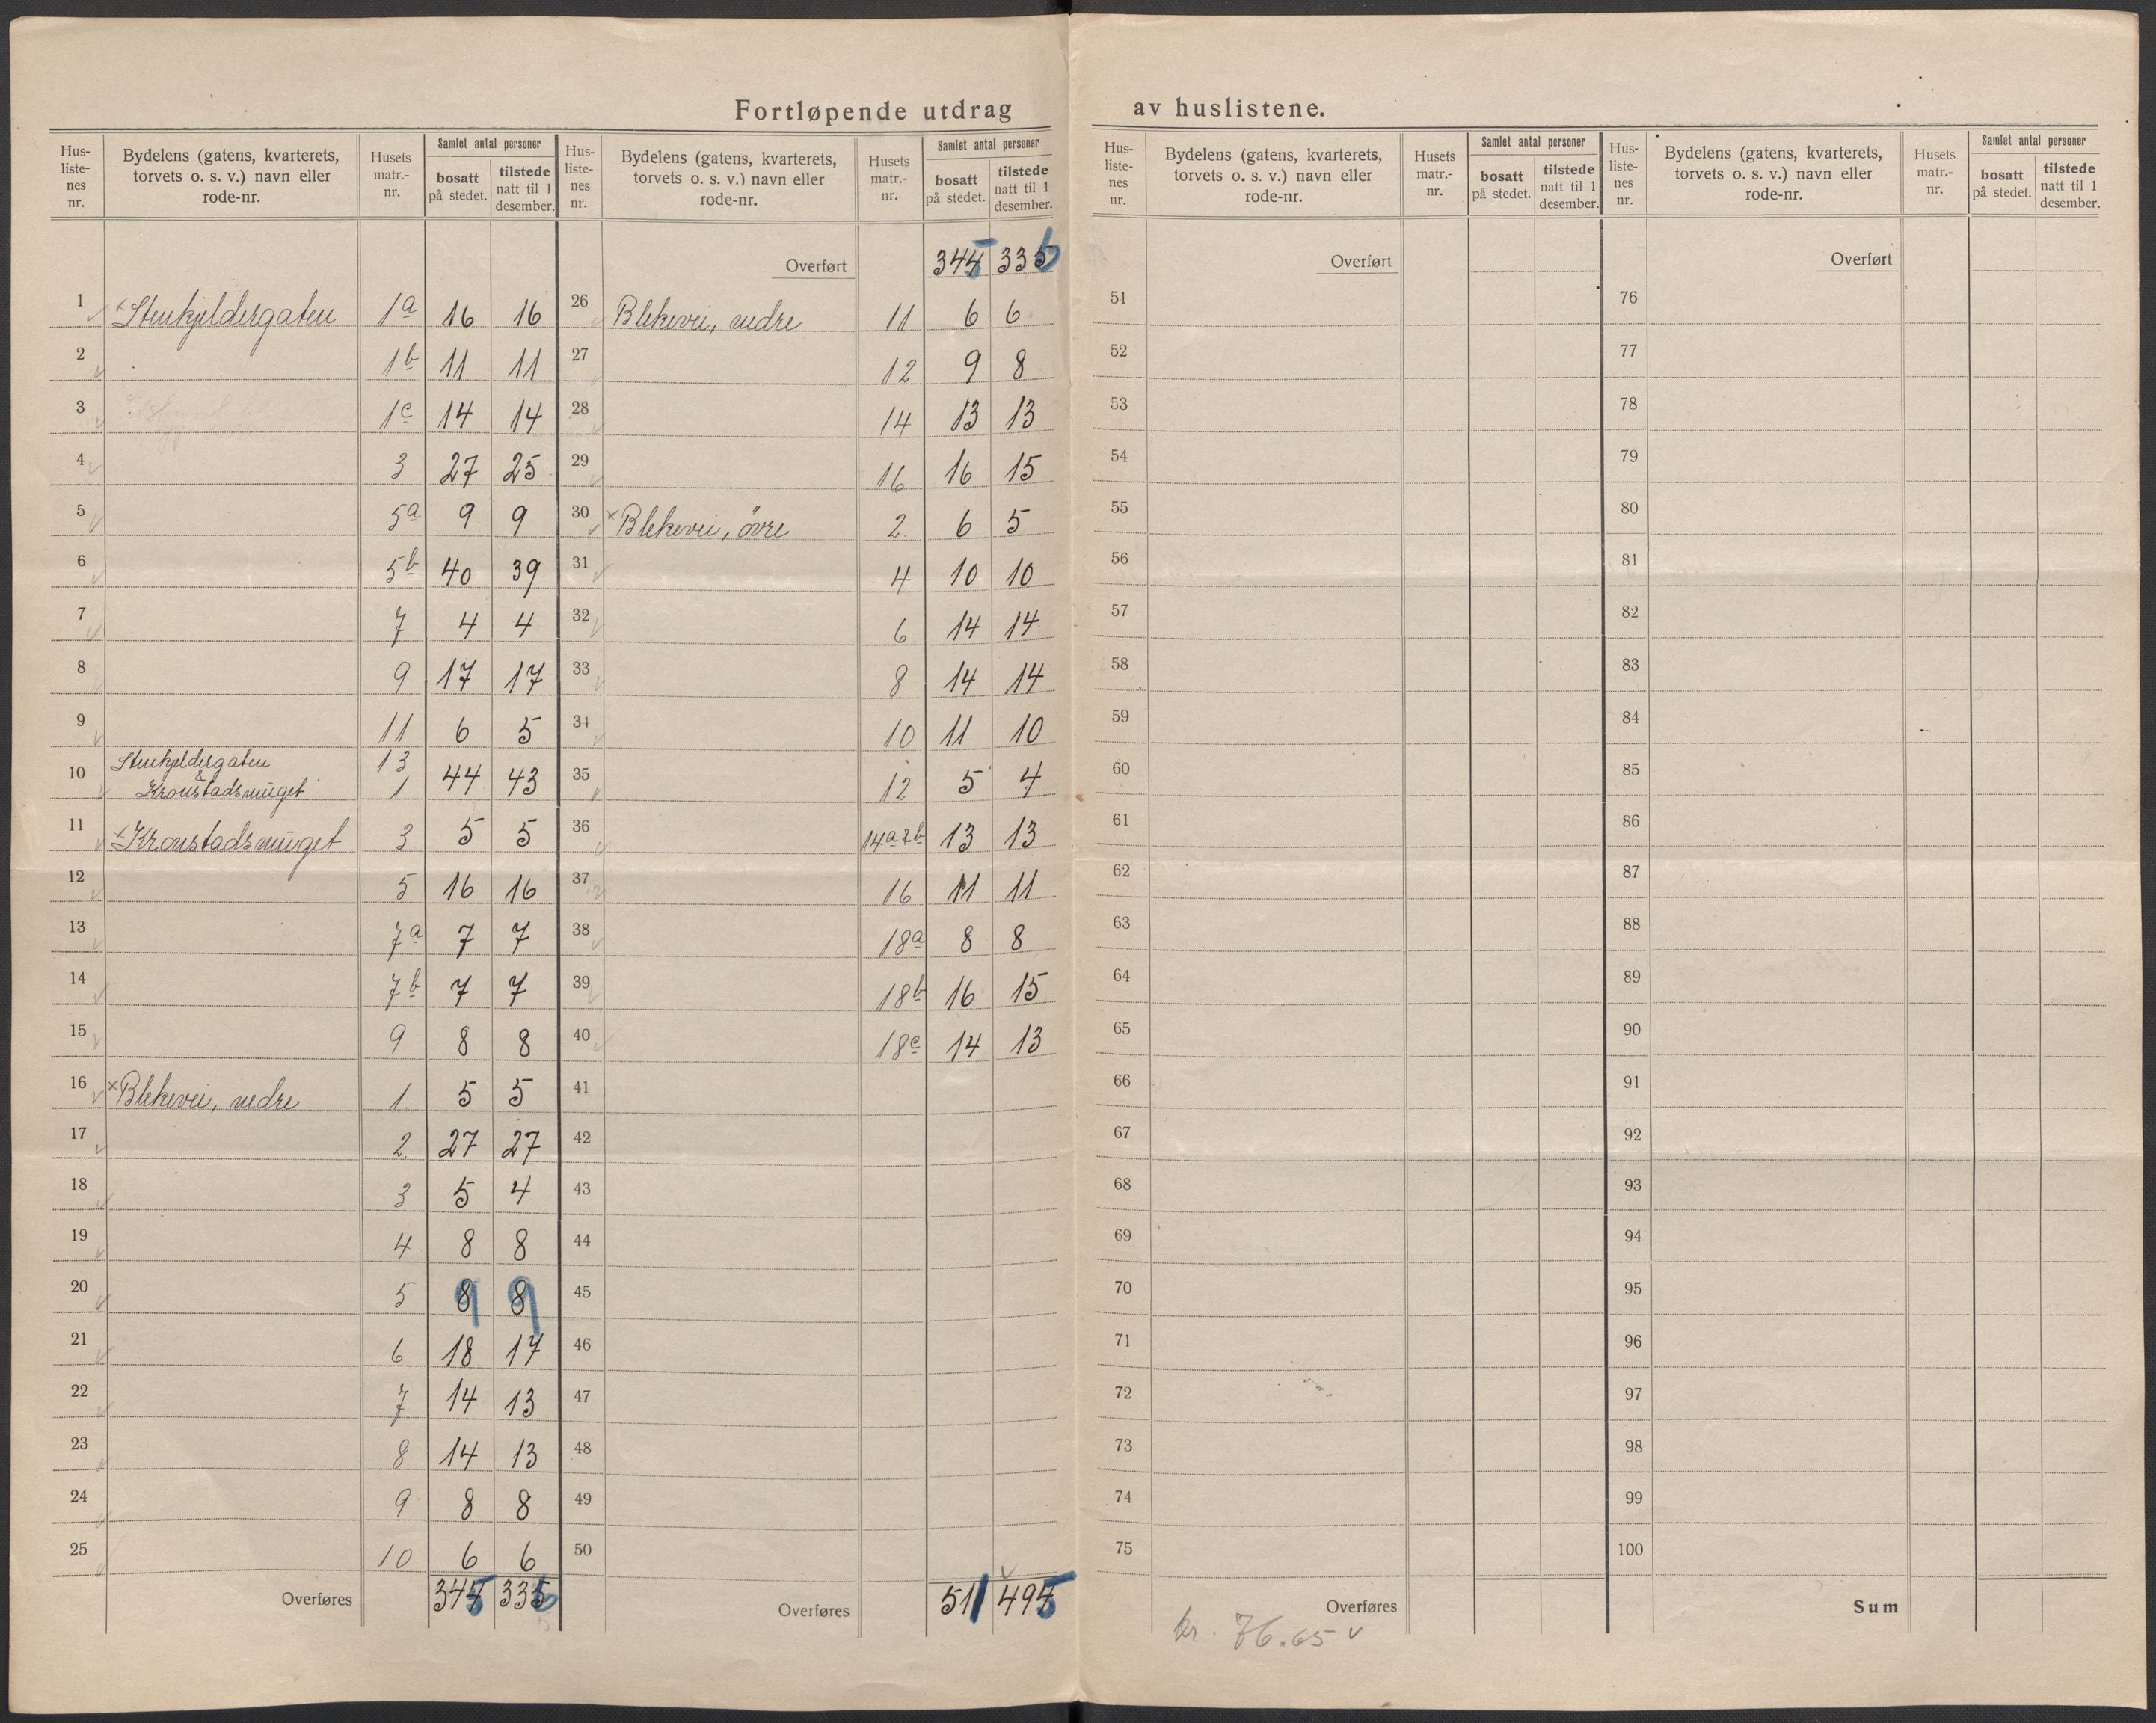 Fortløpende utdrag av huslistene.
Hus-liste-nes nr. | Bydelens (gatens, kvarterets, torvets o. s. v.) navn eller rode-nr. | Husets matr.-nr. | Samlet antal personer | bosatt på stedet. | tilstede natt til 1 desember.
1 Stenkjeldergaten 1a 16 16
2 1b 11 11
3 1c 14 14
4 3 27 25
5 5a 9 9
6 5b 40 39
7 7 4 4
8 9 17 17
9 11 6 5
10 Stenkjeldergaten 13
& Kronstadsmuget 1 44 43
11 Kronstadsmuget 3 5 5
12 5 16 16
13 7a 7 7
14 7b 7 7
15 9 8 8
16 × Blekevei, nedre 1. 5 5
17 2. 27 27
18 3 5 4
19 4 8 8
20 5 9 9
21 6 18 17
22 7 14 13
23 8 14 13
24 9 8 8
25 10 6 6
Overføres 345 336
Hus-liste-nes nr. | Bydelens (gatens, kvarterets, torvets o. s. v.) navn eller rode-nr. | Husets matr.-nr. | Samlet antal personer | bosatt på stedet. | tilstede natt til 1 desember.
Overført 345 336
26 Blekevei, nedre 11 6 6
27 12 9 8
28 14 13 13
29 16 16 15
30 × Blekevei, övre 2. 6 5
31 4 10 10
32 6 14 14
33 8 14 14
34 10 11 10
35 12 5 4
36 14a&b 13 13
37 16 11 11
38 18a 8 8
39 18b 16 15
40 18c 14 13
41
42
43
44
45
46
47
48
49
50
Overføres 511 495
Hus-liste-nes nr. | Bydelens (gatens, kvarterets, torvets o. s. v.) navn eller rode-nr. | Husets matr.-nr. | Samlet antal personer | bosatt på stedet. | tilstede natt til 1 desember.
Overført
51
52
53
54
55
56
57
58
59
60
61
62
63
64
65
66
67
68
69
70
71
72
73
74
75
Overføres
kr. 76.65
Hus-liste-nes nr. | Bydelens (gatens, kvarterets, torvets o. s. v.) navn eller rode-nr. | Husets matr.-nr. | Samlet antal personer | bosatt på stedet. | tilstede natt til 1 desember.
Overført
76
77
78
79
80
81
82
83
84
85
86
87
88
89
90
91
92
93
94
95
96
97
98
99
100
Sum